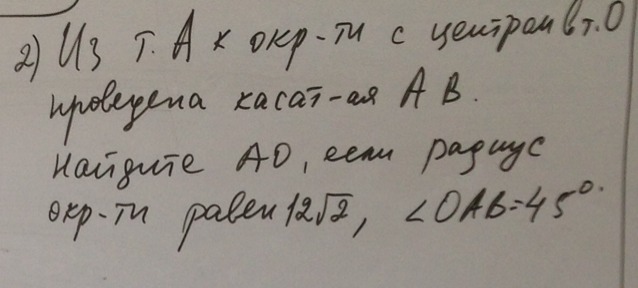 2) Из т. А к окр-ти с центром в т. О
проведена касат-ая АВ.
Найдите АО, если радиус
окр-ти равен 12√2, ∠ОАВ=45°.